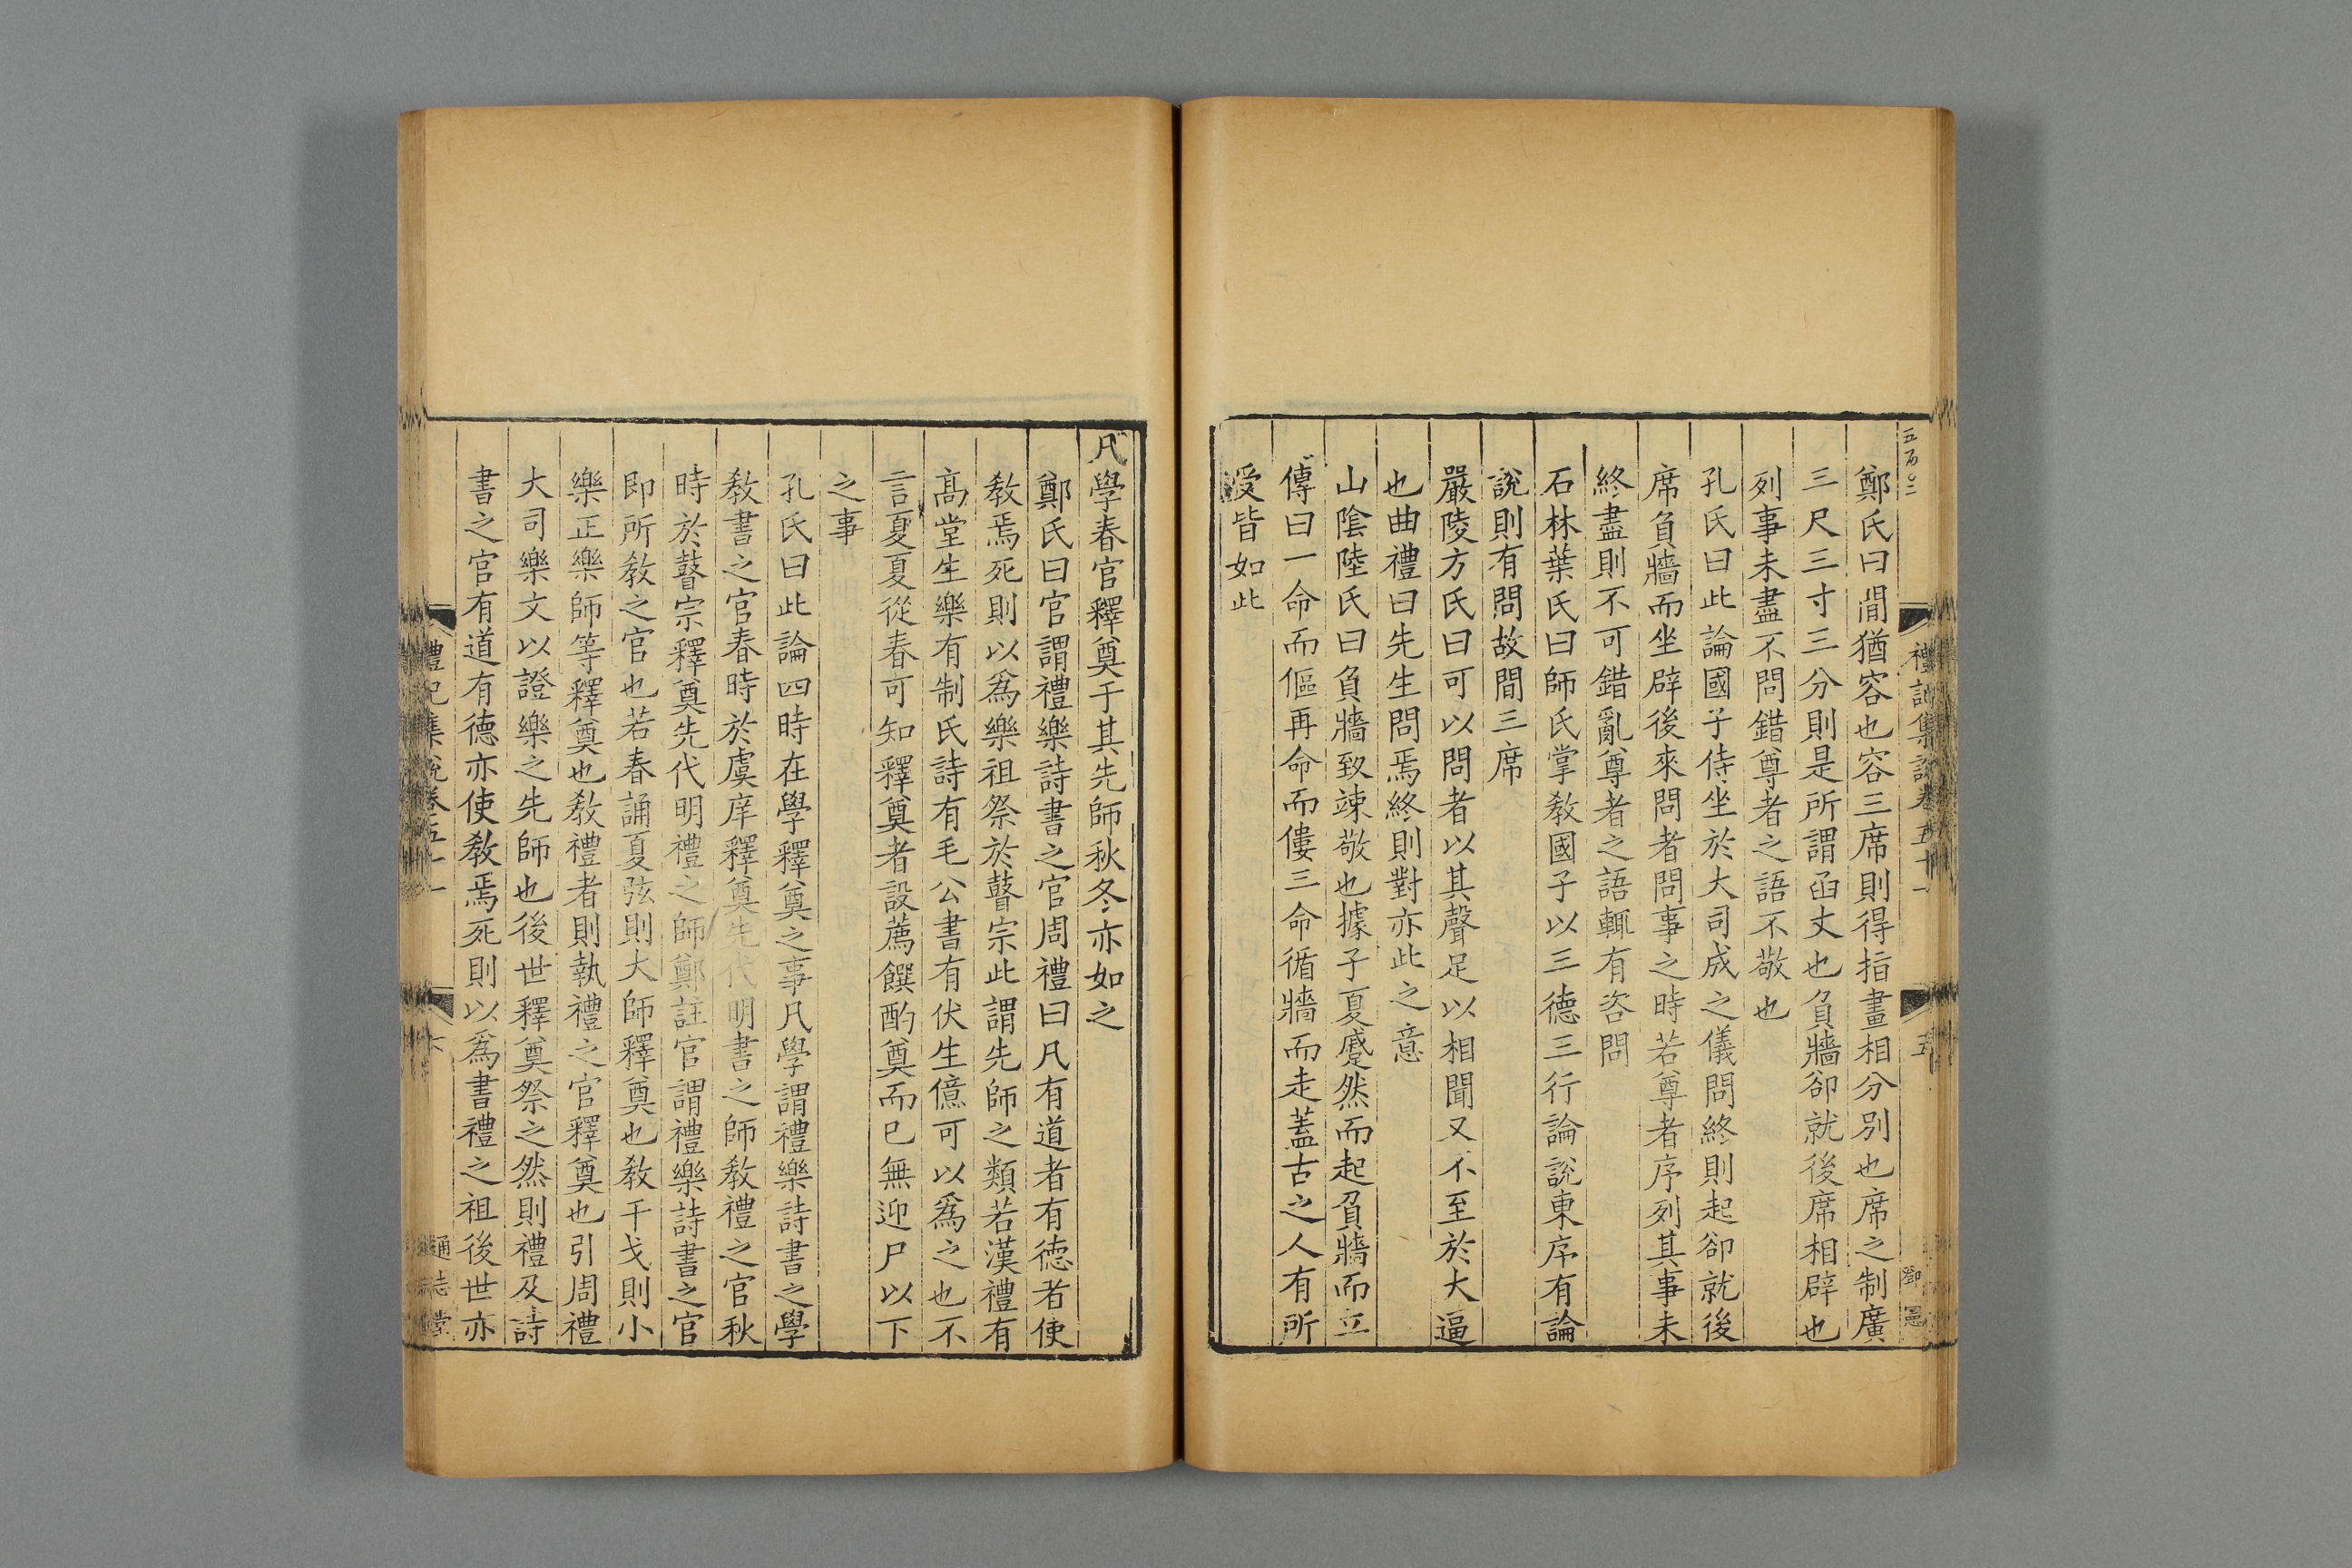 五百〇二
禮記集說卷五十一
五
鄭氏曰閒猶容也容三席則得指畫相分别也席之制廣
三尺三寸三分則是所謂函丈也負牆卻就後席相辟也
列事未盡不問錯尊者之語不敬也
孔氏曰此論國子侍坐於大司成之儀問終則起卻就後
席負牆而坐辟後來問者問事之時若尊者序列其事未
終盡則不可錯亂尊者之語輒有咨問
石林葉氏曰師氏掌教國子以三德三行論說東序有論
說則有問故間三席
嚴陵方氏曰可以問者以其聲足以相聞又不至於大逼
也曲禮曰先生問焉終則對亦此之意
山陰陸氏曰負牆致竦敬也據子夏蹙然而起負牆而立
傳曰一命而傴再命而僂三命循牆而走蓋古之人有所
受皆如此
凡學春官釋奠于其先師秋冬亦如之
鄭氏曰官謂禮樂詩書之官周禮曰凡有道者有德者使
教焉死則以為樂祖祭於瞽宗此謂先師之類若漢禮有
高堂生樂有制氏詩有毛公書有伏生億可以為之也不
言夏夏從春可知釋奠者設薦饌酌奠而已無迎尸以下
之事
孔氏曰此論四時在學釋奠之事凡學謂禮樂詩書之學
教書之官春時於虞庠釋奠先代明書之師教禮之官秋
時於瞽宗釋奠先代明禮之師鄭註官謂禮樂詩書之官
即所教之官也若春誦夏弦則大師釋奠也教干戈則小
樂正樂師等釋奠也教禮者則執禮之官釋奠也引周禮
大司樂文以證樂之先師也後世釋奠祭之然則禮及詩
書之官有道有德亦使教焉死則以為書禮之祖後世亦
禮記集說卷五十一
六
通志堂